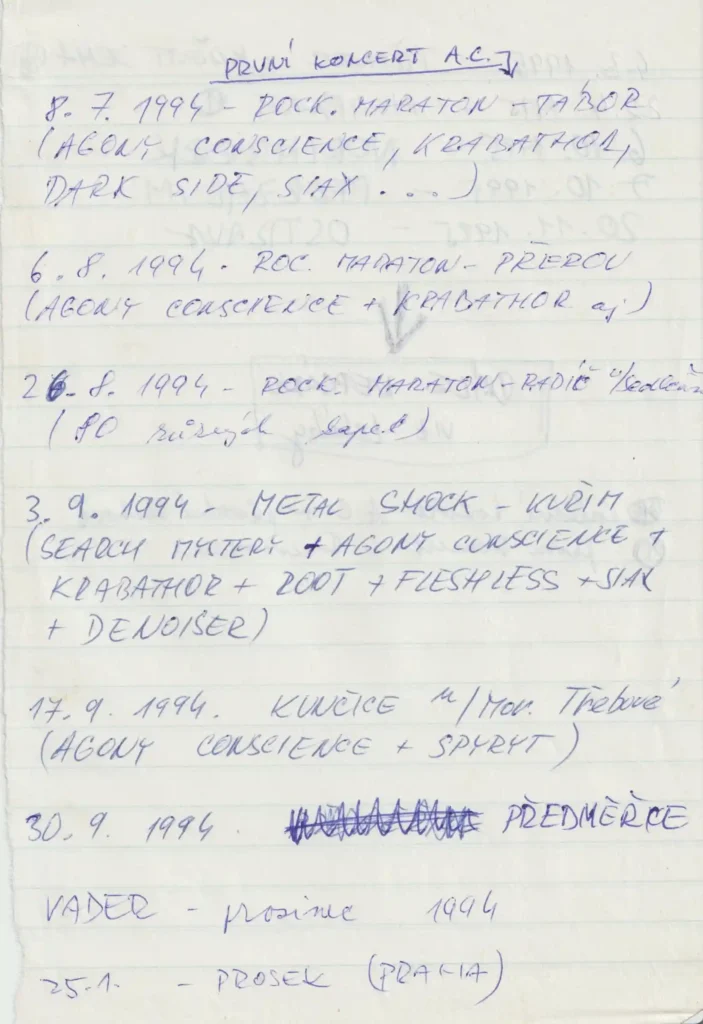 PRVNÍ KONCERT A.C.
8. 7. 1994 - ROCK. MARATON - TÁBOR
(AGONY CONSCIENCE, KRABATHOR,
DARK SIDE, SIAX ...)
6. 8. 1994 - ROC. MARATON - PŘEROV
(AGONY CONSCIENCE + KRABATHOR aj)
26. 8. 1994 - ROCK. MARATON - RADIČ u/
(80 různých kapel)
3. 9. 1994 - METAL SHOCK - KUŘIM
(SEARCH MYSTERY + AGONY CONSCIENCE +
KRABATHOR + ROOT + FLESHLESS + SIAX
+ DENOISER)
17. 9. 1994. KUNČICE u/Mor. Třebové
(AGONY CONSCIENCE + SPYRYT)
30. 9. 1994. PŘEDMĚŘCE
VADER - prosinec 1994
25.1. - PROSEK (PRAHA)